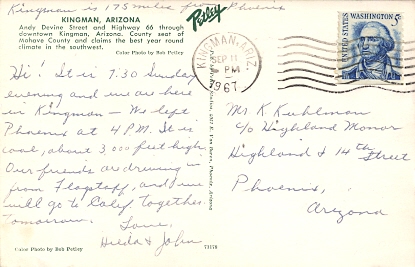 Kingman is 175 miles from Phoenix
KINGMAN, ARIZONA
Andy Devine Street and Highway 66 through
downtown Kingman, Arizona. County seat of
Mohave County and claims the best year round
climate in the southwest.
Color Photo by Bob Petley
Hi! It is 7:30 Sunday
evening and we are here
in Kingman — We left
Phoenix at 4 P.M. It is
cool, about 3,000 feet high.
Our friends are driving in
from Flagstaff, and we
will go to Calif. together
Tomorrow.
Love,
Hilda & John
Color Photo by Bob Petley
73178
Petley
KINGMAN, ARIZ.
SEP 11
PM
1967
UNITED STATES
WASHINGTON 5c
Mr K Kuhlman
c/o Highland Manor
Highland & 14th Street
Phoenix,
Arizona